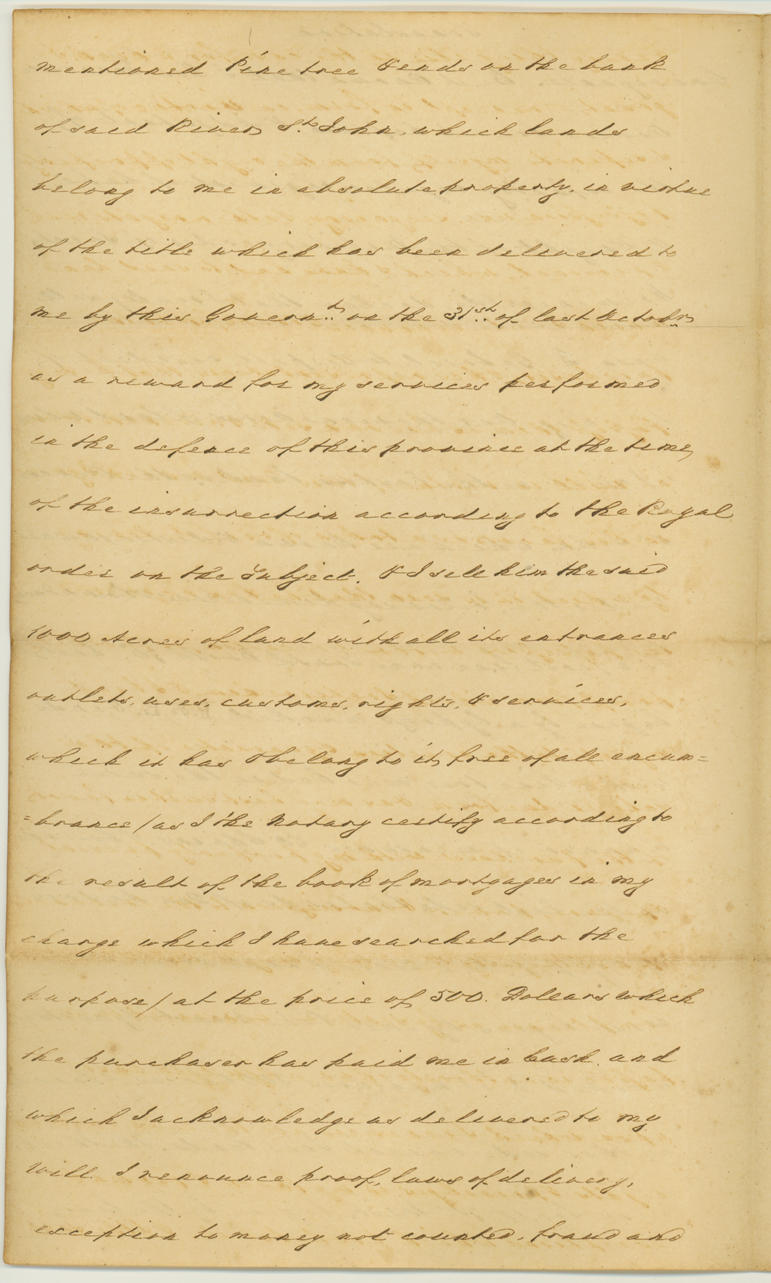 mentioned Pine tree & ends on the bank
of said River St. John, which lands
belong to me in absolute property, in virtue
of the title which has been delivered to
me by this Governt. on the 31st. of last Octobr.
as a reward for my services performed
in the defence of this province at the time
of the insurrection according to the Royal
order on the Subject. & I sell him the said
1000 Acres of land with all its entrances
outlets, uses, customs, rights, & services,
which it has & belong to it, free of all encum=
=brance / as I the Notary certify according to
the result of the book of mortgages in my
charge which I have searched for the
purpose / at the price of 500. Dollars which
the purchaser has paid me in Cash and
which I acknowledge as delivered to my
will. I renounce proof, laws of delivery,
exception to money not counted, fraud and